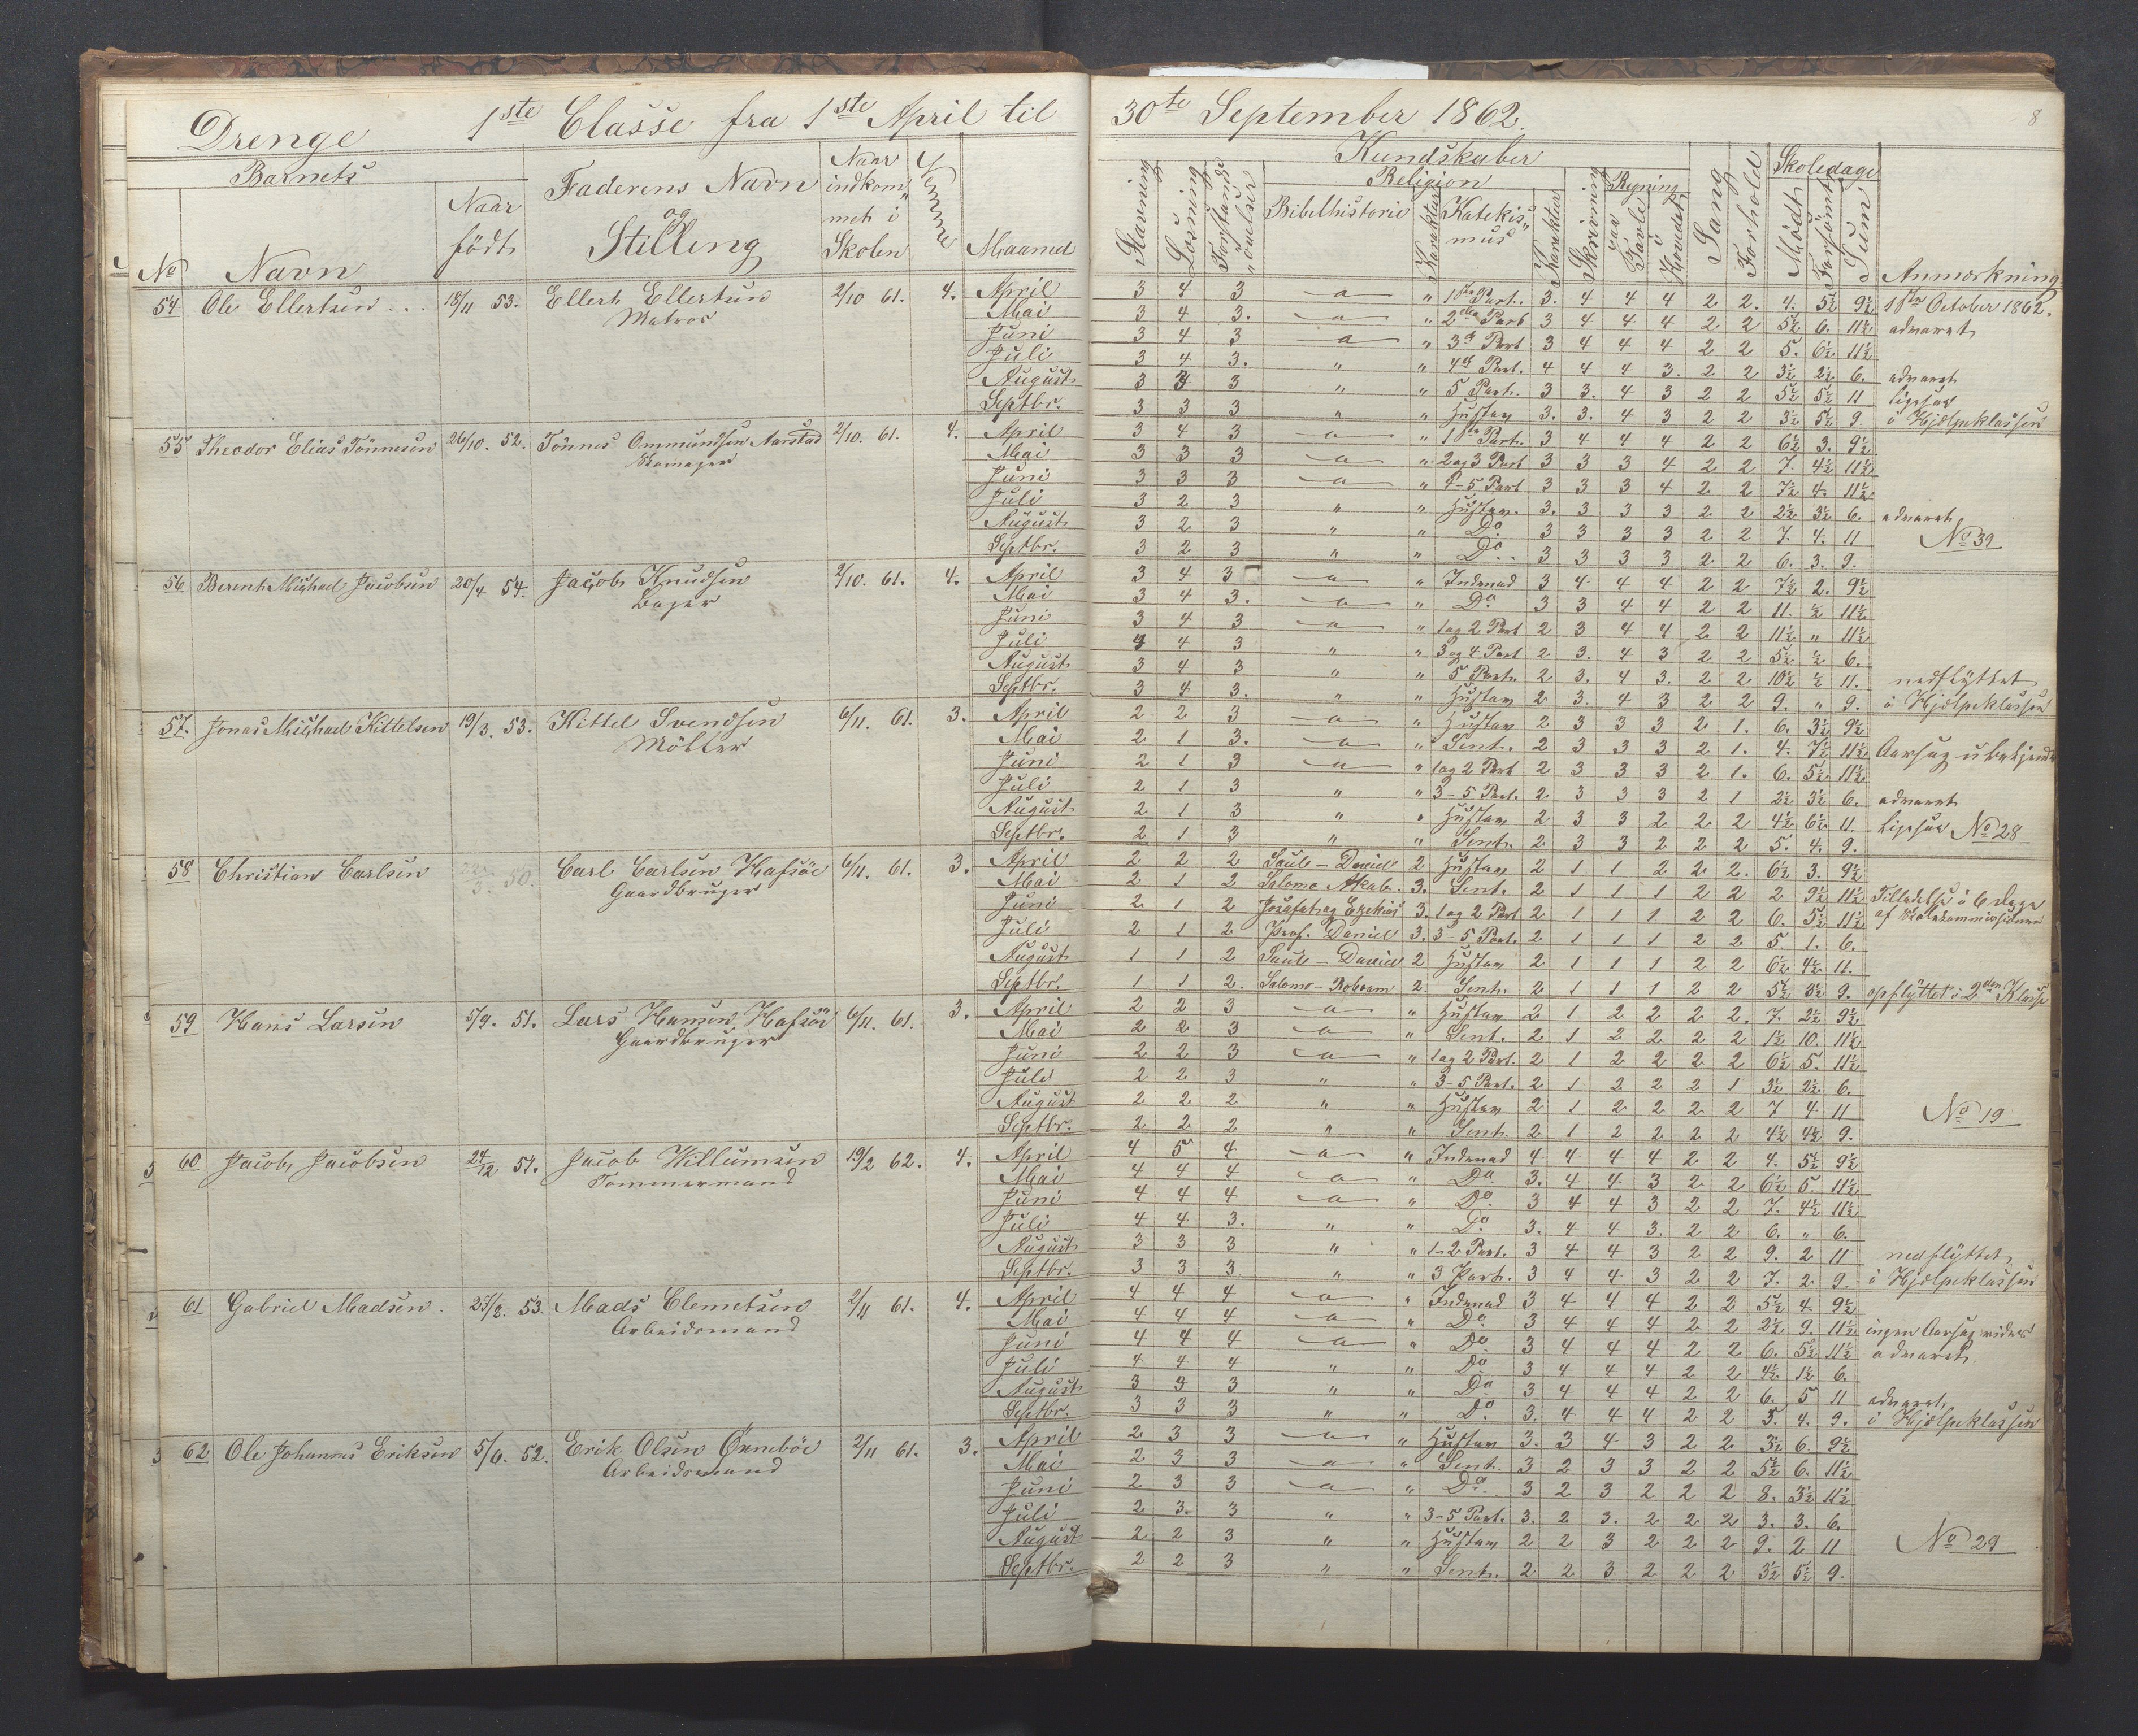 Drenge 1ste Classe fra 1ste April til 30te September 1862. 8
Barnets
No
Navn
Naar födt
Faderens Navn og Stilling
Naar indkommet i Skolen
Evne
Maaned
Kundskaber
Stavning
Læsning
Forstands övelser
Religion
Bibelhistorie
Karakter
Katekismus
Karakter
Skrivning
Regning
Tavle
Hovedet
Sang
Forhold
Skoledage
Mödt
Forsömt
Sum
Anmærkning
54 Ole Ellertsen 18/11 53. Ellert Ellertsen Matros 2/10 61. 4.
April 3 4 3 a " 1ste Part. 3. 4 4 4 2 2. 4. 5½ 9½ 1ste October 1862.
Mai 3 4 3. a " 2den Part 3 4 4 4 2 2 5½ 6. 11½ advaret
Juni 3 4 3 a " 3d Part 3 4 4 4 2 2 5. 6½ 11½
Juli 3 4 3. " " 4de Part. 4 4 4 3. 2 2 3½ 2½ 6. advaret
August 3 3 " " 5 Part. 3 3. 4 3 2 2 5½ 5½ 11 ligesaa
Septbr. 3 3 3 " " Hustav 3. 3. 4 3 2 2 3½ 5½ 9. i Hjelpeklassen
55 Theodor Elias Tönnesen 26/10. 52. Tönnes Ommundsen Aarstad Skomager 2/10. 61. 4.
April 3 4 3 a " 1ste Part. 3 4 4 4 2 2 6½ 3. 9½
Mai 3 3 3 a " 2 og 3 Part 3 3 3 4 2 2 7. 4½ 11½
Juni 3 3 3 a " 4-5 Part 3 3 3 4 2 2 7½ 4. 11½
Juli 3 2 3 " " Hustav. 3. 3 3 3 2 2 2½ 3½ 6. advaret
August 3 2 3 " " Do 3 3 3 3 2 2 7. 4. 11 No 39
Septbr. 3 2 3 " " Do 3 3 3 3 2 2 6. 3. 9.
56 Berent Michael Jacobsen 20/4 54. Jacob Knudsen Bager 2/10. 61. 4.
April 3 4 3 a " Indenad 3 4 4 4 2 2 7½ 2. 9½
Mai 3 4 3. a " Do 3 3 4 4 2 2 11. ½ 11½
Juni 3 4 3 a " 1 og 2 Part 2 3 4 4 2 2 11½ " 11½
Juli 4 4 3 " " 3 og 4 Part 2 3. 4 3 2 2 5½ ½ 6.
August 3 4 3 " " 5 Part. 2 3. 4 3. 2 2 10½ ½ 11. nedflyttet
Septbr. 3 4 3. " " Hustav 2 3. 4 3 2 2 9. " 9. i Hjelpeklassen
57. Jonas Michael Kittelsen 19/3. 53. Kittel Svendsen Möller 6/11. 61. 3.
April 2 2 3 a " Hustav 2 3 3 3 2 1. 6. 3½ 9½
Mai 2 1 3. a " Sent. 2 3 3 3 2 1. 4. 7½ 11½ Aarsag ubekjendt
Juni 2 1 3 a " 1 og 2 Part 2 3 3 3 2 1. 6. 5½ 11½
Juli 2 1 3 " " 3-5 Part. 2 3 3 3 2 1 2½ 3½ 6. advaret
August 2 1 3 " " Hustav 2 3 3 2 2 2 4½ 6½ 11. ligesaa No 28
Septbr. 2 1 3 " " Sent. 2 3 3 2 2 2 5. 4. 9.
58 Christian Carlsen 22/3. 50. Carl Carlsen Hafsöe Gaardbruger 6/11. 61. 3.
April 2 2 2 Saul-Daniel 2 Hustav 2 1 1 2 2 2. 6½ 3. 9½
Mai 2 1 2 Salomo Akab. 3. Sent. 2 1 1 1 2 2 2 9½ 11½ Tilladelse i 6 Dage
Juni 2 1 2 Josafat og Ezekias 3. 1 og 2 Part 2 1 1 1 2 2 6. 5½ 11½ af Skolekommissionen
Juli 2 1 2 Prof. Daniel 3. 3-5 Part. 2 1 1 1 2 2 5 1. 6.
August 1 1 2 Saul-Daniel 2 Hustav 2 1 1 1 2 2 6½ 4½ 11.
Septbr. 1 1 2. Salomo-Roboam 2 Sent. 2 1 1 1 2 2 5½ 3½ 9. opflyttet i 2den Klasse
59 Hans Larsen 5/9. 51. Lars Hansen Hafsöe Gaardbruger 6/11. 61. 3.
April 2 2 3 a " Hustav 2 1 2 2 2 2. 7. 2½ 9½
Mai 2 2 3 a " Sent. 2 1 2 2 2 2 1½ 10. 11½
Juni 2 2 3 a " 1 og 2 Part. 2 1 2 2 2 2 6½ 5. 11½
Juli 2 2 3 " " 3-5 Part. 2 1 2 2 2 1 3½ 2½ 6.
August 2 2 2 " " Hustav 2 1 2 2 2 2 7 4 11 No 19
Septbr. 2 2 2 " " Sent. 2 1 2 2 2 2 4½ 4½ 9.
60 Jacob Jacobsen 24/12 51. Jacob Willumsen Tommermand 19/2 62. 4.
April 4 5 4 a " Indenad 4 4 4 4 2 2 4. 5½ 9½
Mai 4 4 4 a " Do 3. 4 4 3 2 2 6½ 5. 11½
Juni 4 4 4 a " Do 3 4 4 3 2 2 7. 4½ 11½
Juli 4 4 3. " " Do 3. 4 4 3. 2 2 6. " 6.
August 3 3 3 " " 1-2 Part. 3 4 4 3 2 2 9. 2 11 nedflyttet
Septbr. 3 3 3 " " 3 Part. 3 4 4 3 2 2 7. 2 9. i Hjelpeklassen
61 Gabriel Madsen. 27/2. 53. Mads Clemetsen Arbeidsmand 2/11 61. 4.
April 4 4 4 a " Indenad 3 4 4 4 2 2 5½ 4. 9½
Mai 4 4 4 a " Do 3 4 4 4 2 2 2½ 9. 11½ ingen Aarsag vides
Juni 4 4 4 a " Do 3 4 4 4 2 2 6. 5½ 11½ advaret
Juli 4 4 4 " " Do 3 4 4 4 2 2 4½ 1½ 6.
August 3 3 3 " " Do 3 4 4 4 2 2 6. 5 11 advaret
Septbr. 3 3 3 " " Do 3. 4 4 4 2 2 5. 4. 9. i Hjelpeklassen
62 Ole Johannes Eriksen 5/6. 52. Erik Olsen Ørneböe Arbeidsmand 2/11 61. 3.
April 2 3 3 a " Hustav 3. 3 4 3 2 2 3½ 6. 9½
Mai 2 3 3 a " Sent. 3 2 3 3 2 2 5½ 6. 11½
Juni 2 3 3 a " Do 3 2 3 2 2 2 8. 3½ 11½
Juli 2 3. 3 " " 3-5 Part. 3. 2 3. 2 2 2 3. 3. 6.
August 2 2 3 " " Hustav 2 2 3 2 2 2 9. 2 11 No 29
Septbr. 2 2 3 " " Sent. 2 2 3 2 2 2 3½ 5½ 9.